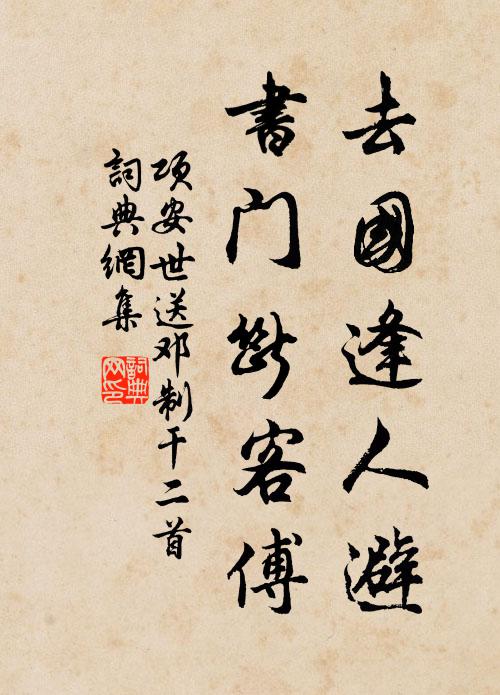 去國逢人避
書门斷客傅
项安世送邓制干二首
詞典網集
詞典
网印